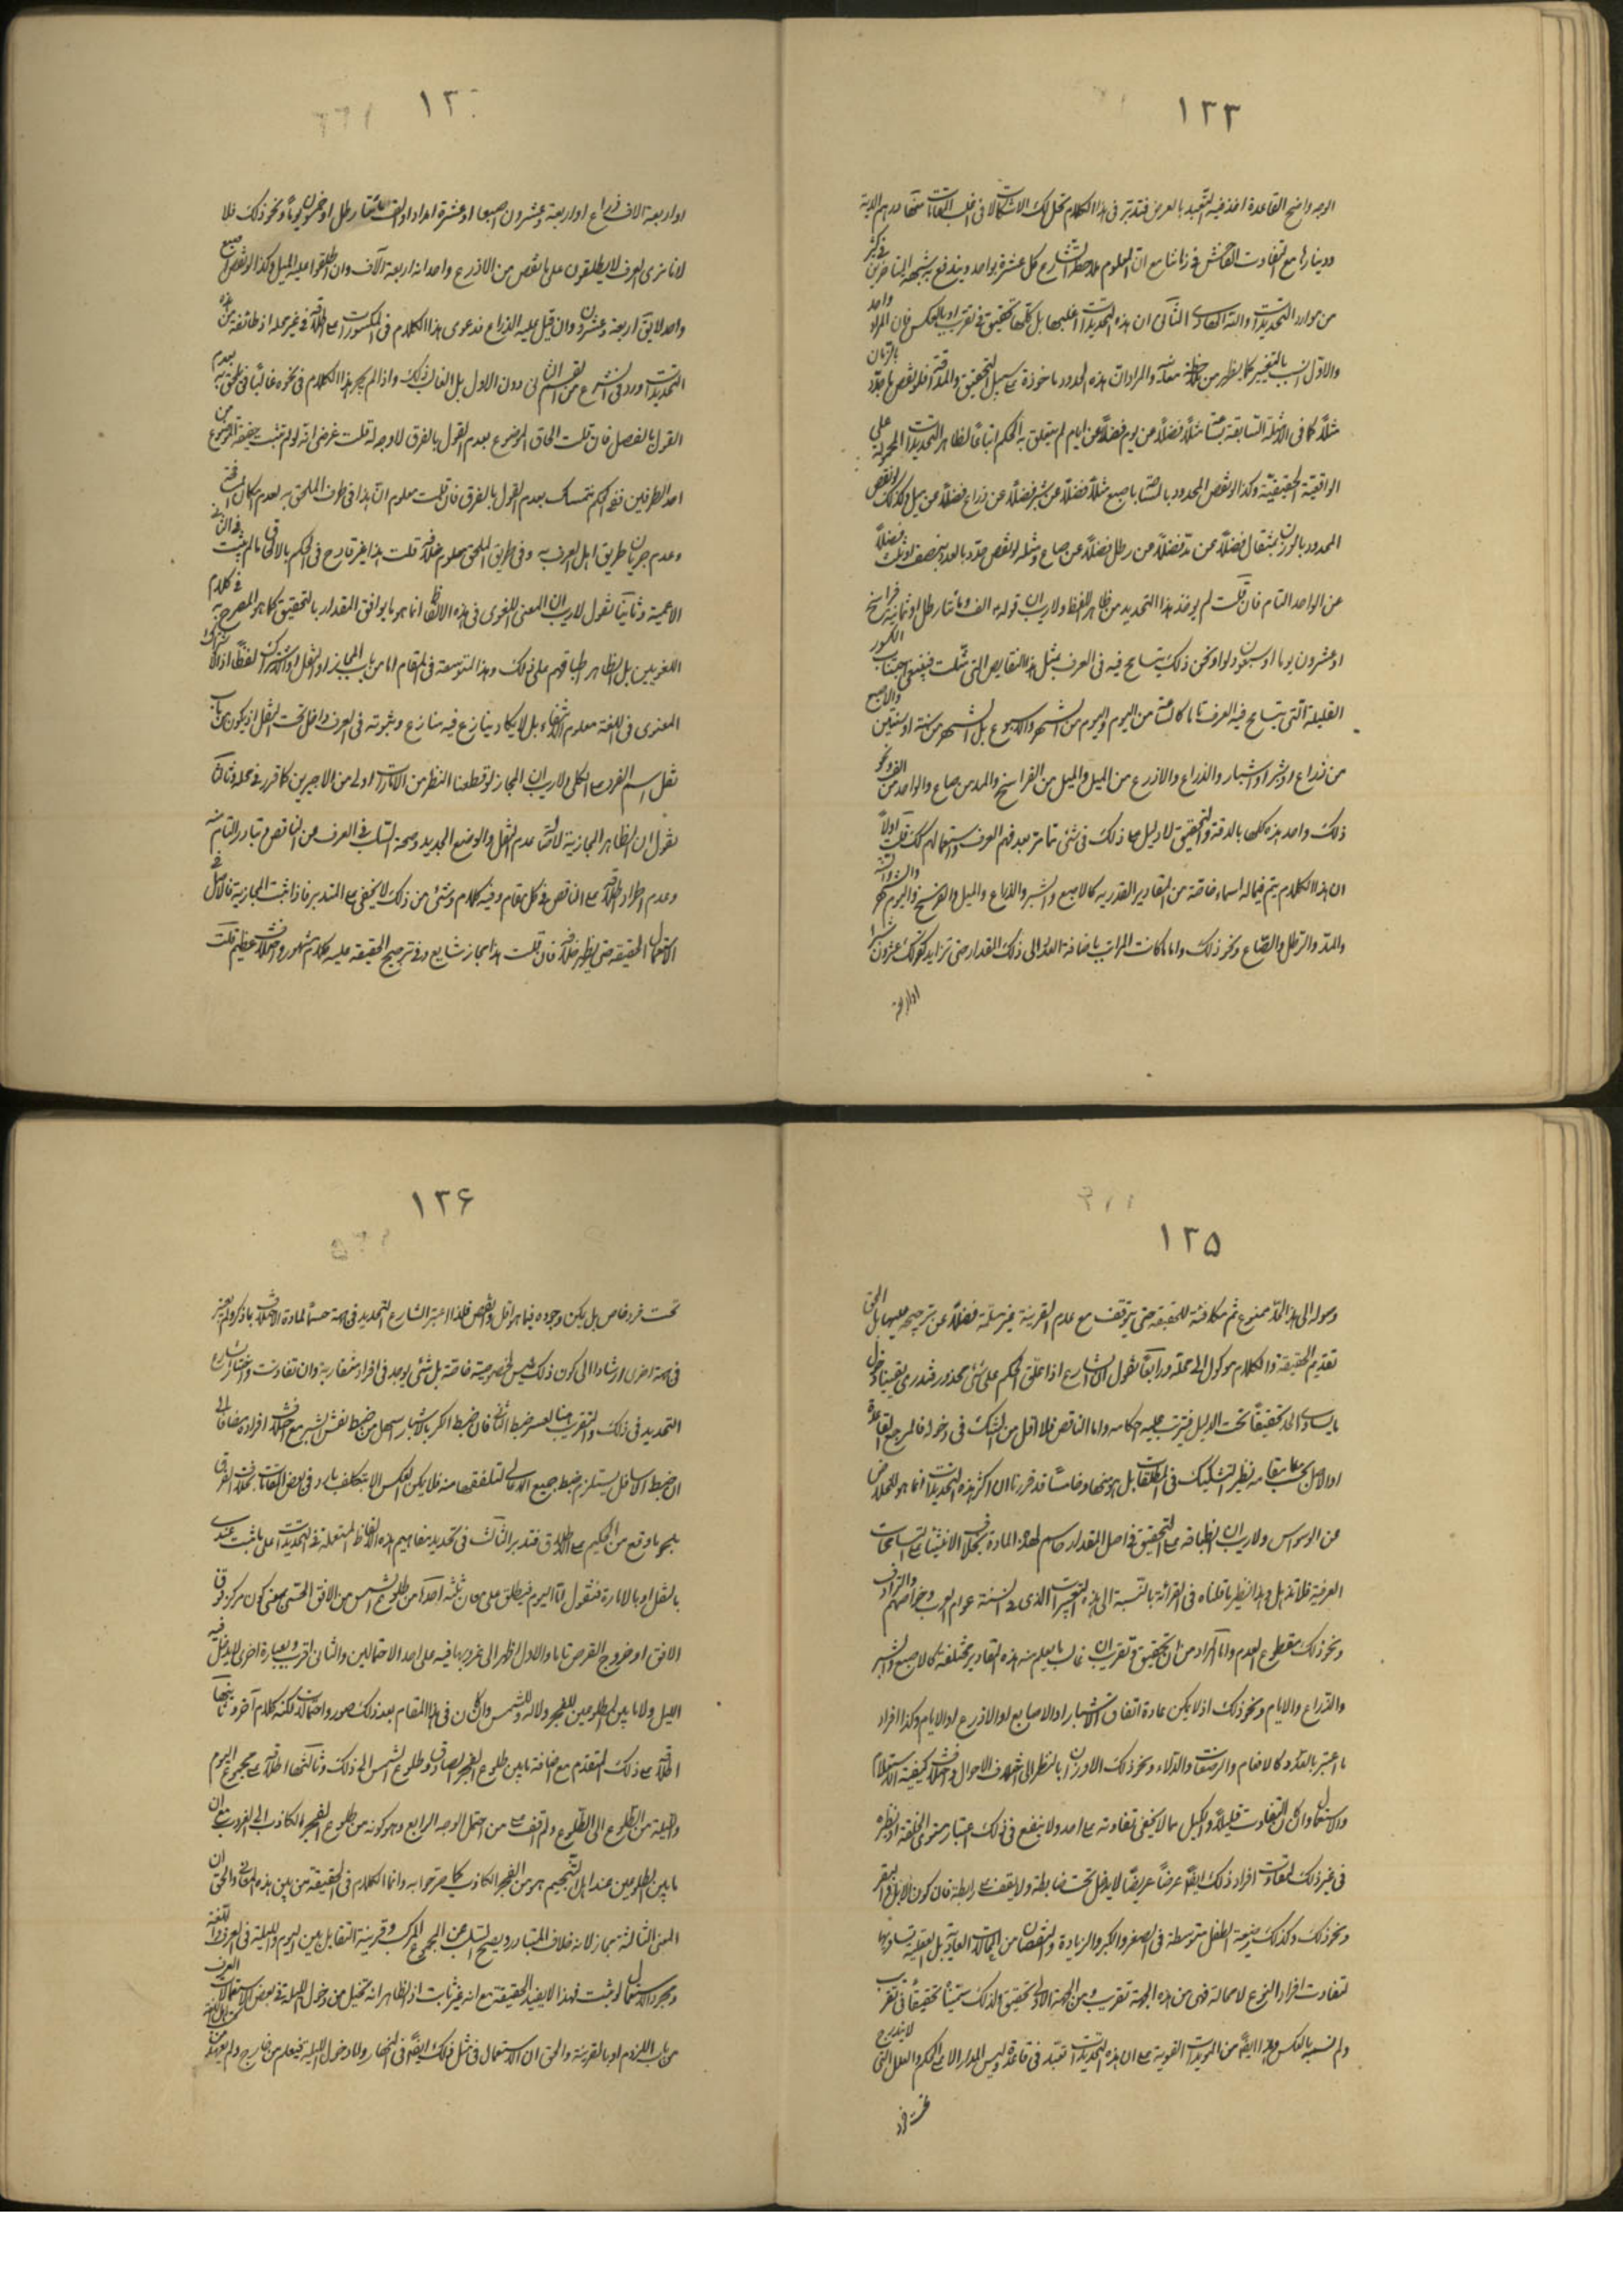 ١٢٣
الوجه واضح القاعدة اخذ فيه التعبد بالعرض فتدبر في هذا الكلام تحل لك الاشكالات في اغلب المقامات
ودينارا مع التفاوت الفاحش في زماننا مع ان المعلوم ملاحظة الشارع كل عشرة بواحد ويندفع به شبهة المتاخرين في كثير
من موارد التحديدات والله الهادي الثاني ان هذه التحديدات اغلبها بل كلها تحقيق في تقريب او بالعكس فان المراد واحد
والاول انسب بالتعبير كما يظهر من ملاحظة معناه والمراد ان هذه الحدود ماخوذة على سبيل التحقيق والدقة فلو نقص ما حدد بالزمان
مثلا كما في الامثلة السابقة بساعة مثلا فضلا عن يوم فضلا عن ايام لم يتعلق به الحكم اتباعا لظاهر التحديدات المحمولة على
الواقعية الحقيقية وكذا لو نقص المحدود بالمساحة باصبع مثلا فضلا عن شبر فضلا عن ذراع فضلا عن ميل وكذلك لو نقص
المحدود بالوزن بمثقال فضلا عن مد فضلا عن رطل فضلا عن صاع ومثله لو نقص ما حدد بالعدد بنصف او ثلث فضلا
عن الواحد التام فان قلت لم يؤخذ هذا التحديد من ظاهر اللفظ ولا ريب ان قوله الف ومائتا رطل او ثمانية فراسخ
او عشرون يوما او سبعون دلوا ونحو ذلك يتسامح فيه في العرف بمثل هذا النقايص التي مثلت فينبغي اجتناب الكسور
القليلة التي يتسامح فيه العرف تاما كالساعة من اليوم واليوم من الشهر والاسبوع بل الشهر من سنة او سنتين والاصبع
من ذراع او شبر او اشبار والذراع والاذرع من الميل والميل من الفراسخ والمد من صاع والواحد من الف ونحو
ذلك واخذ هذه كلها بالدقة والتحقيق لا دليل على ذلك في شئ تامة بعد فهم العرف واستعمالهم كك قلت اولا
ان هذا الكلام يتم فيما له اسماء خاصة من المقادير القدرية كالاصبع والشبر والذراع والميل والفرسخ واليوم والشهر
والمد والرطل والصاع ونحو ذلك واما ما كانت المراتب باضافة العدد الى ذلك المقدار حتى تزايد كقولك عشرون شبرا
او اربعة
١٢
او اربعة الاف ذراع او اربعة وعشرون اصبعا او عشرة امداد او الف ومائتا رطل او خمسون يوما ونحو ذلك فلا
لانا نرى العرف لا يطلقون على ما نقص من الاذرع واحد انه اربعة آلاف وان اطلقوا عليه الميل وكذا لو نقص اصبع
واحد لا يق اربعة وعشرون وان قيل عليه الذراع فدعوى هذا الكلام في المكسورات على اطلاقه في غير محله اذ طائفة من هذه
التحديدات ورد في الشرع من القسم الثاني دون الاول بل الغالب ذلك واذا لم يجر هذا الكلام في نحوه غالبا فيلحق به بعدم
القول بالفصل فان قلت الحاق الموضوع بعدم القول بالفرق لا وجه له قلت غرضي انه لو لم تثبت حقيقة الموضوع من
احد الطرفين ففي الحكم نتمسك بعدم القول بالفرق فان قلت معلوم ان هذا في طرف الملحق به لعدم اشكال فيه
وعدم جريان طريق اهل العرف به وفي طريق الملحق معلوم خلافه قلت هذا غير قادح في الحكم بالالحاق ما لم يثبت
الاعمية وثانيا نقول لا ريب ان المعنى اللغوي في هذه الالفاظ انما هو ما يوافق المقدار بالتحقيق كما هو المصرح به في كلام
اللغويين بل الظاهر اطباقهم على ذلك وهذا التوسعة في المقام اما من باب المجاز او النقل او الاشتراك لفظا اذ الاشتراك
المعنوي في اللغة معلوم الانتفاء بل لا يكاد ينازع فيه منازع وثبوته في العرف داخل تحت النقل اذ يكون من باب
نقل اسم الفرد الى الكلي ولا ريب ان المجاز لو قطعنا النظر من الامارات اولى من الاخيرين كما قرر في محله وثالثا
نقول ان الظاهر المجازية لاصالة عدم النقل والوضع الجديد وصحة السلب في العرف من الناقص وتبادر التام منه
وعدم اطراد اطلاقه على الناقص في كل مقام وفيه كلام وشئ من ذلك لا يخفى على المتدبر فاذا ثبت المجازية فالاصل في
الاستعمال الحقيقة حتى يظهر خلافه فان قلت هذا مجاز شايع وفي ترجيح الحقيقة عليه كلام مشهور وخلاف عظيم قلت
١٢٥
وصوله الى هذا الحد ممنوع ثم مكافئته للحقيقة حتى يتوقف مع عدم القرينة غير مسلمة فضلا عن ترجيحه عليها بل الحق
تقديم الحقيقة والكلام موكول الى محله ورابعا نقول ان الشارع اذا علق الحكم على شئ محدود فندري يقينا دخول
ما يساوي الحد تحقيقا تحت الدليل فيترتب عليه احكامه واما الناقص فلا اقل من الشك في دخوله فالمرجع القاعدة
او الاصل بحسب مقامه نظير التشكيك في المطلقات بل هو منها وخامسا قد قررنا ان اكثر هذه التحديدات انما هو للخلاص
عن الوسواس ولا ريب ان انطباقه على التحقيق في اصل المقدار حاسم لهذه المادة بخلاف الابتناء على المسامحات
العرفية فلا تذهل وهذا نظير ما قلناه في القرائة بالنسبة الى هذه التغييرات الذي في السنة عوام العرب وخواصهم والترادف
ونحو ذلك مقطوع العدم واما المراد من انه تحقيق في تقريب ان غالب ما يعلم منه هذه المقادير مختلفة كالاصبع والشبر
والذراع والايام ونحو ذلك اذ لا يمكن عادة اتفاق الاشبار او الاصابع او الاذرع او الايام وكذا افراد
ما اعتبر بالعدد كالاغنام والرضعات والدلاء ونحو ذلك الاوزان بالنظر الى اختلاف الاحوال واختلاف كيفية الاستلام
والاستعمال وان كان التفاوت قليلا والكيل مما لا يخفى تفاوته على احد ولا ينفع في ذلك اعتبار مستوى الخلقة او نظيره
في غير ذلك لتفاوت افراد ذلك ايضا عرضا عريضا لا يدخل تحت ضابطة ولا يقف على رابطة فان كون الابل والبقر
ونحو ذلك وكذلك رضعة الطفل متوسطة في الصغر والكبر والزيادة والنقصان من المحالات العادية بل العقلية تساويها
لتفاوت افراد النوع لا محالة فهي من هذه الجهة تقريب ومن الجهة الاولى تحقيق ولذلك سميناه تحقيقا في تقريب
ولم نسمه بالعكس وهذا ايضا من المؤيدات القوية على ان هذه التحديدات تعبد في قاعدة وليس المدار الا على الحكم والعلل التي لا يندرج
تحت فرد
١٢۶
تحت فرد خاص بل يمكن وجوده فيما هو اقل وانقص فلذا اعتبر الشارع التحديد في جهة حسما لمادة الاختلاف بما ذكر ولم يعتبر
في جهة اخرى ارشادا الى كون ذلك ليس لخصوصية خاصة بل شئ يوجد في افراد متقاربة وان تفاوت واختار الشارع
التحديد في ذلك والتقريب هنا لعسر ضبط الثاني فان ضبط الكر بالاشبار سهل من ضبط نفس الشبر مع اختلاف افراده مضافا الى
ان ضبط الاسافل يستلزم ضبط جميع الاعالي لتلفقها منه فلا يمكن العكس الا بتكلف بارد في بعض المقامات بخلاف الفرق
بل هو ما وقع من الحكيم على الاطلاق فتدبر الثالث في تحديد مفاهيم هذه الالفاظ المستعملة في التحديدات على ما ثبت عندي
بالنقل او بالامارة فنقول اما اليوم فيطلق على معان ثلثة احدها من طلوع الشمس من الافق الحسي بمعنى كون مركزه فوق
الافق او خروج القرص تاما والاول اظهر الى غروبها فيه على احد الاحتمالين والثاني اقرب وبعبارة اخرى لا يدخل فيه
الليل ولا ما بين الطلوعين للفجر ولا للشمس وان كان في هذا المقام بعد ذلك صور واحتمالات لكنه كلام آخر وثانيها
اطلاقه على ذلك المتقدم مع اضافة ما بين طلوع الفجر الصادق وطلوع الشمس الى ذلك وثالثها اطلاقه على مجموع اليوم
والليلة من الطلوع الى الطلوع ولم اقف على من احتمل الوجه الرابع وهو كونه من طلوع الفجر الكاذب الى الغروب مع ان
ما بين الطلوعين عند اهل التنجيم هو من الفجر الكاذب كما صرحوا به وانما الكلام في الحقيقة من بين هذه المعاني والحق ان
المعنى الثالث مجاز لانه خلاف المتبادر ويصح السلب عن المجموع المركب وقرينة التقابل بين اليوم والليلة في العرف واللغة
ومجرد الاستعمال لو ثبت فهذا لا يفيد الحقيقة مع انه غير ثابت اذ الظاهر انه تخيل من دخول الليلة في بعض الاستعمالات
من باب اللزوم او بالقرينة والحق ان الاستعمال في مثل ذلك ايضا في النهار وانما دخول الليلة فيعلم من خارج ولم يعهد